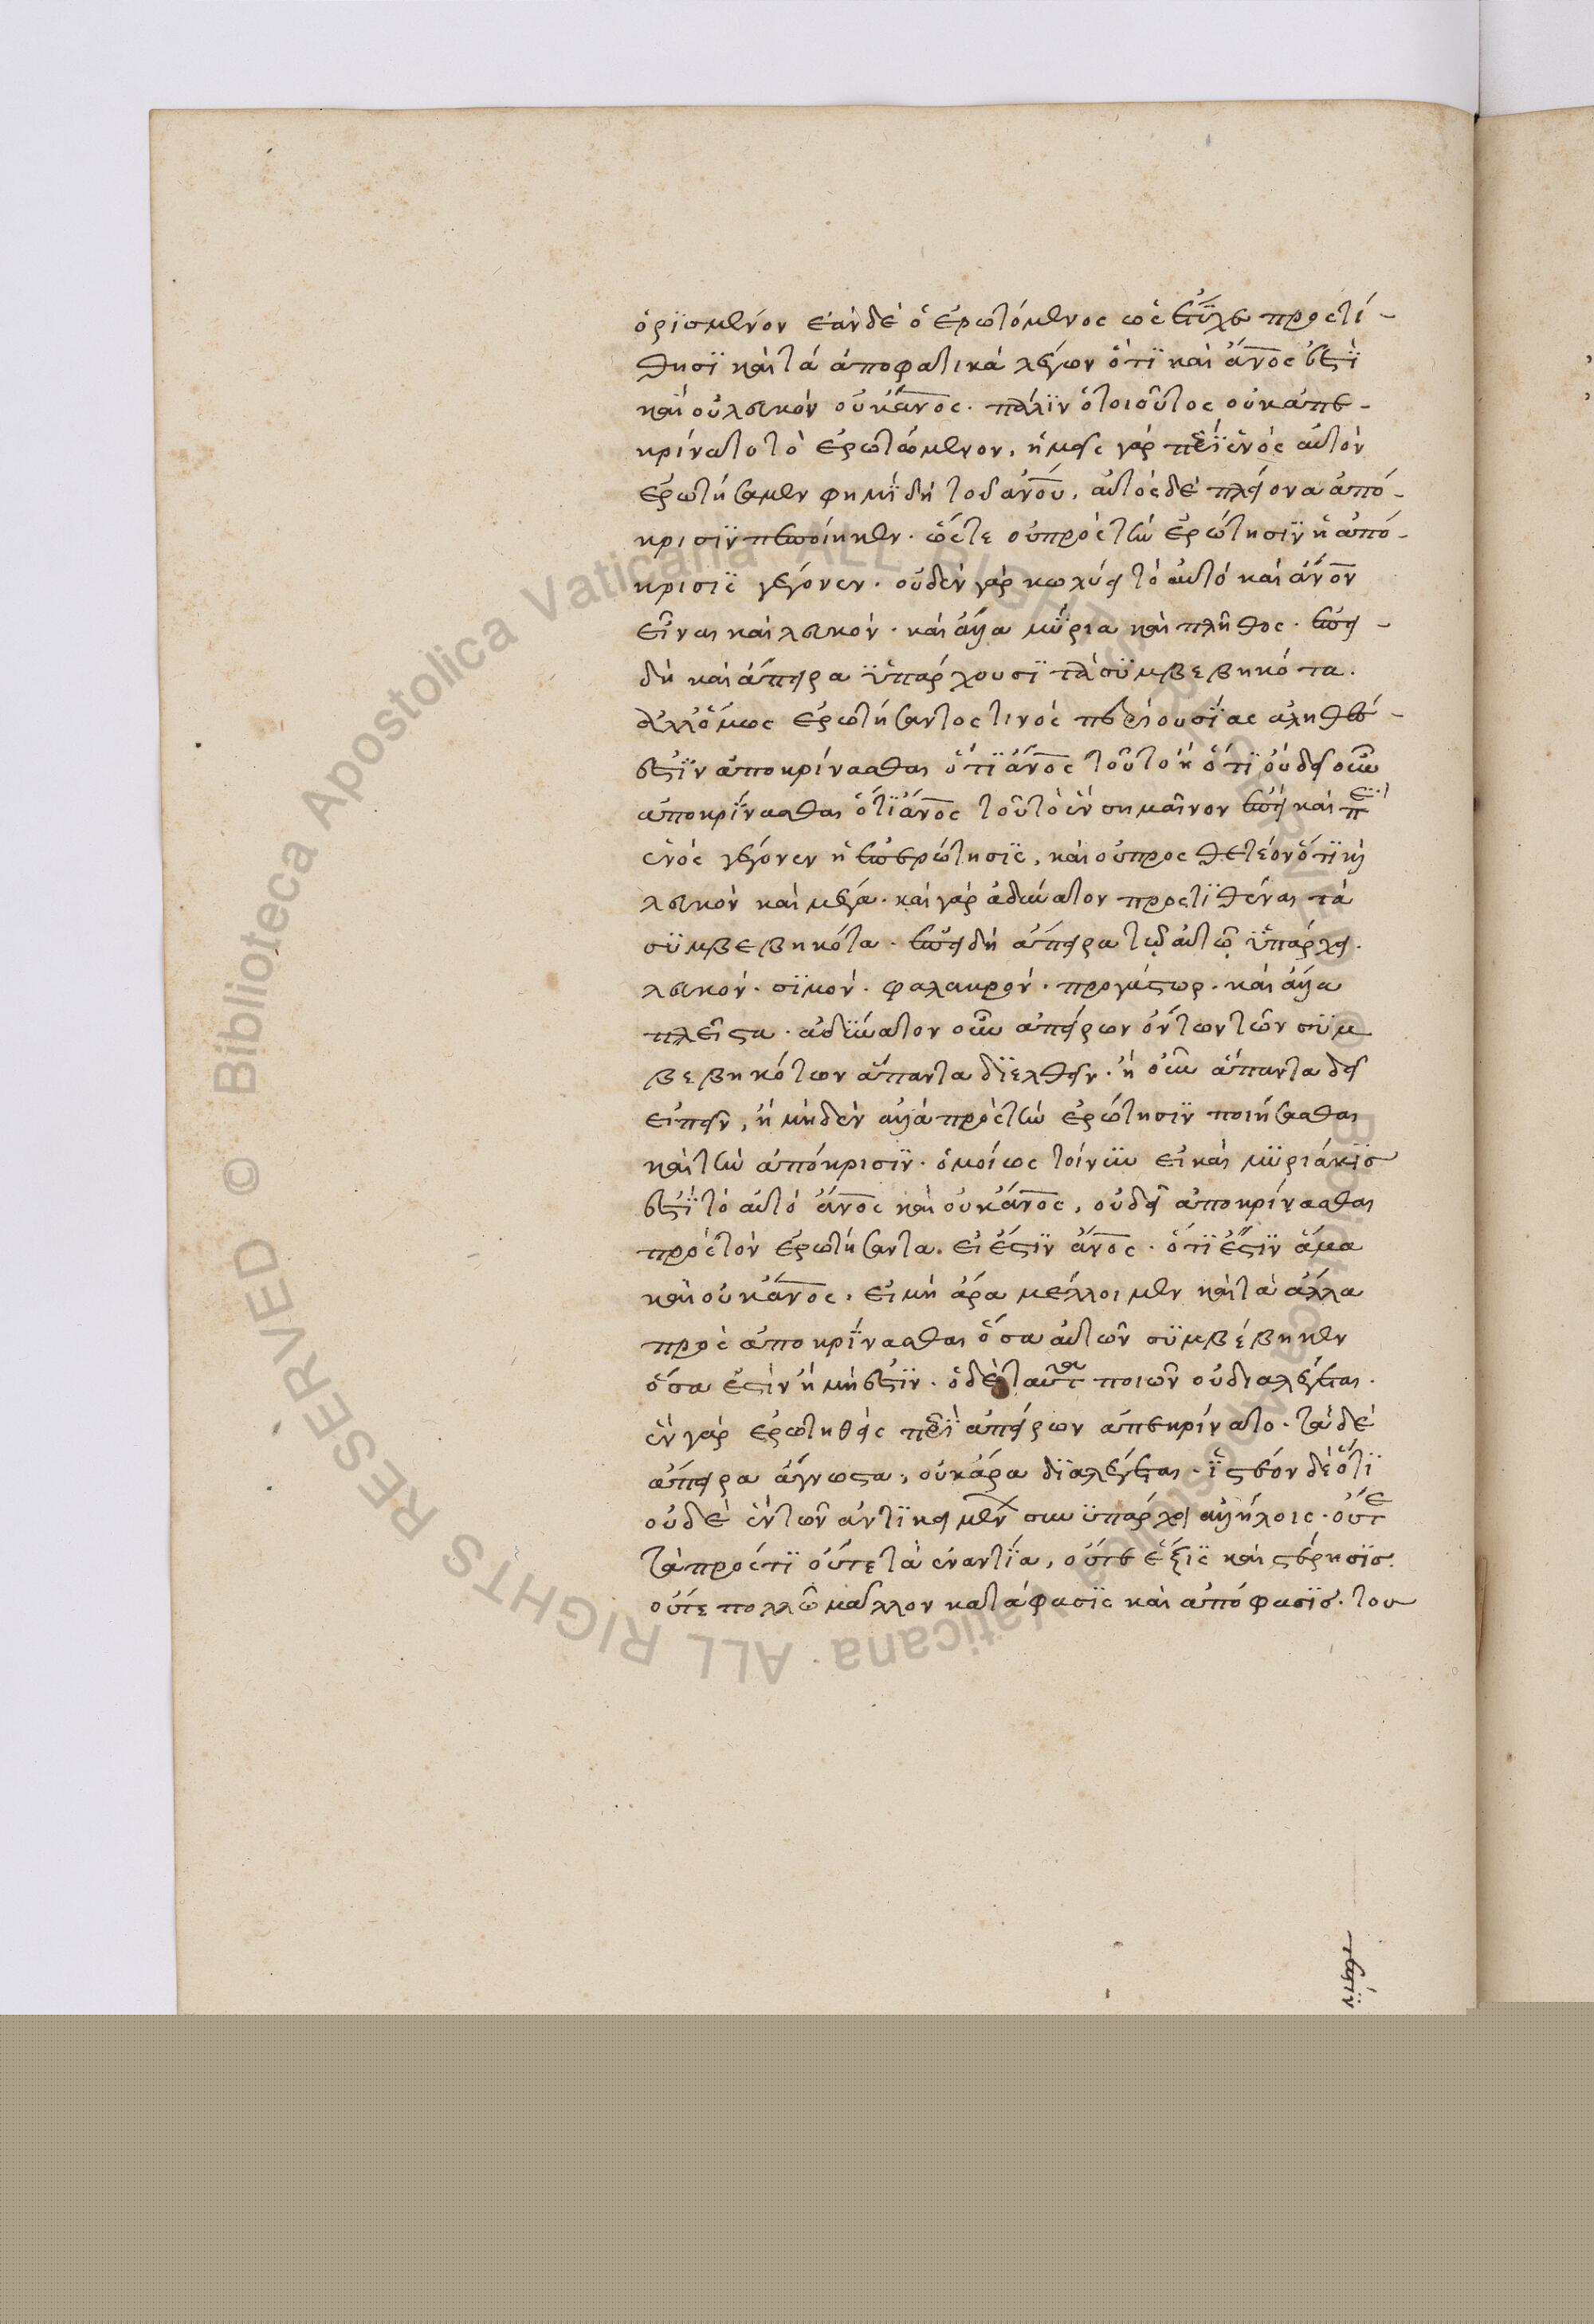 ὁρϊσμένον ἐὰν δὲ ὁ ἐρωτόμενος ὡς ἔτϋχε προστί-
θησϊ καὶ τὰ ἀποφατικὰ λέγων ὅτϊ καὶ ἄν̅ο̅ς ἐστϊ
καὶ οὐ λευκὸν οὐκ ἄν̅ο̅ς. πάλϊν ὁ τοιοῦτος οὐκ ἀπε-
κρίνατο τὸ ἐρωτώμενον, ἡμεῖς γὰρ πεϊ ἑνὸς αὐτὸν
ἐρωτήσαμεν φημϊ δὴ τοῦ ἀν̅ο̅υ, αὐτὸς δὲ πλείονα ἀπό-
κρισϊν πεποίηκεν. ὥστε οὐ πρὸς τὴν ἐρώτησϊν ἡ ἀπό-
κρισϊς γέγονεν. οὐδὲν γὰρ κωλύει τὸ αὐτὸ καὶ ἄν̅ο̅ν
εἶναι καὶ λευκὸν. καὶ ἄλλα μϋρια καὶ πλῆθος. ἐπει-
δὴ καὶ ἄπειρα ϋπάρχουσϊ τὰ σϋμβεβηκότα.
ἀλλ' ὅμως ἐρωτήσαντος τινὸς περὶ οὐσϊας ἀληθὲ-
ἐστϊν ἀποκρίνασθαι ὅτϊ ἄν̅ο̅ς τοῦτο ἢ ὅτϊ οὐ δεῖ οὖν
ἀποκρϊνασθαι ὅτϊ ἄν̅ο̅ς τοῦτο ἓν σημαῖνον ἐπεὶ καὶ πεϊ
ἑνὸς γέγονεν ἡ ἐπερώτησϊς, καὶ οὐ προσθετέον ὅτϊ καὶ
λευκὸν καὶ μέγα. καὶ γὰρ ἀδύνατον προστϊθέναι τὰ
σϋμβεβηκότα. ἐπειδὴ ἄπειρα τῷ αὐτῷ ϋπάρχει.
λευκὸν. σϊμὸν. φαλακρὸν. προγάστωρ. καὶ ἄλλα
πλεῖστα. ἀδϋνατον οὖν ἀπείρων ὄντων τῶν σϋμ
βεβηκότων ἅπαντα δϊελθεῖν. ἢ οὖν ἅπαντα δεῖ
εἰπεῖν, ἢ μηδὲν ἀλλὰ πρὸς τὴν ἐρώτησϊν ποιήσασθαι
καὶ τὴν ἀπόκρισϊν. ὁμοίως τοίνυν εἰ καὶ μϋριάκϊσ
ἐστϊ τὸ αὐτὸ ἄν̅ο̅ς καὶ οὐκ ἄν̅ο̅ς, οὐ δεῖ ἀποκρίνασθαι
πρὸς τὸν ἐρωτήσαντα. εἰ ἔστϊν ἄν̅ο̅ς. ὅτϊ ἔστϊν ἅμα
καὶ οὐκ ἄν̅ο̅ς. εἰ μὴ ἄρα μέλλοι μὲν καὶ τὰ ἄλλα
προσαποκρϊνασθαι ὅσα αὐτῶν σϋμβέβηκεν
ὅσα ἐστὶν ἢ μὴ ἐστϊν. ὁ δὲ ταῦτα ποιῶν οὐ διαλέγεται.
ἓν γὰρ ἐρωτηθεὶς πεϊ ἀπείρων ἀπεκρίνατο. τὰ δὲ
ἄπειρα ἄγνωστα, οὐκ ἄρα δϊαλέγεται. ϊστέον δὲ ὅτϊ
οὐδὲ ἓν τῶν ἀντϊκειμένων συνϋπάρχει ἀλλήλοις. οὔτε
τὰ πρός τϊ οὔτε τὰ ἐναντϊα, οὔτε ἕξϊς καὶ στέρησϊσ.
οὔτε πολλῶ μᾶλλον κατάφασϊς καὶ ἀπόφασϊσ. του